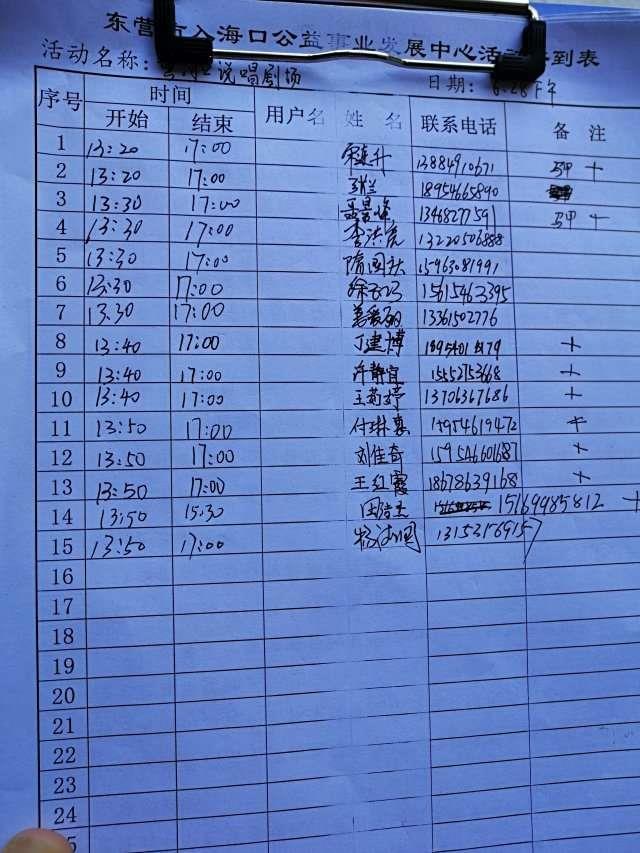 东营市入海口公益事业发展中心活动签到表
活动名称: 说唱剧场 日期: 6.28下午
序号 时间 用户名 姓名 联系电话 备注
开始 结束
1 13:20 17:00 13884910671 马甲 +
2 13:20 17:00 18954665890
3 13:30 17:00 13468277591 马甲 +
4 13:30 17:00 13220506888
5 13:30 17:00 隋国秋 15963081991
6 13:30 17:00 15615463395
7 13.30 17:00 13361502776
8 13:40 17:00 丁建博 +
9 13:40 17:00 许静宜 15552753668 +
10 13:40 17:00 13706367686 +
11 13:50 17:00 付琳惠 15954619472 +
12 13:50 17:00 刘佳奇 159546601687 +
13 13:50 17:00 王红霞 18678639168 +
14 13:50 15:30 15169985812 +
15 13:50 17:00 13153176915
16
17
18
19
20
21
22
23
24